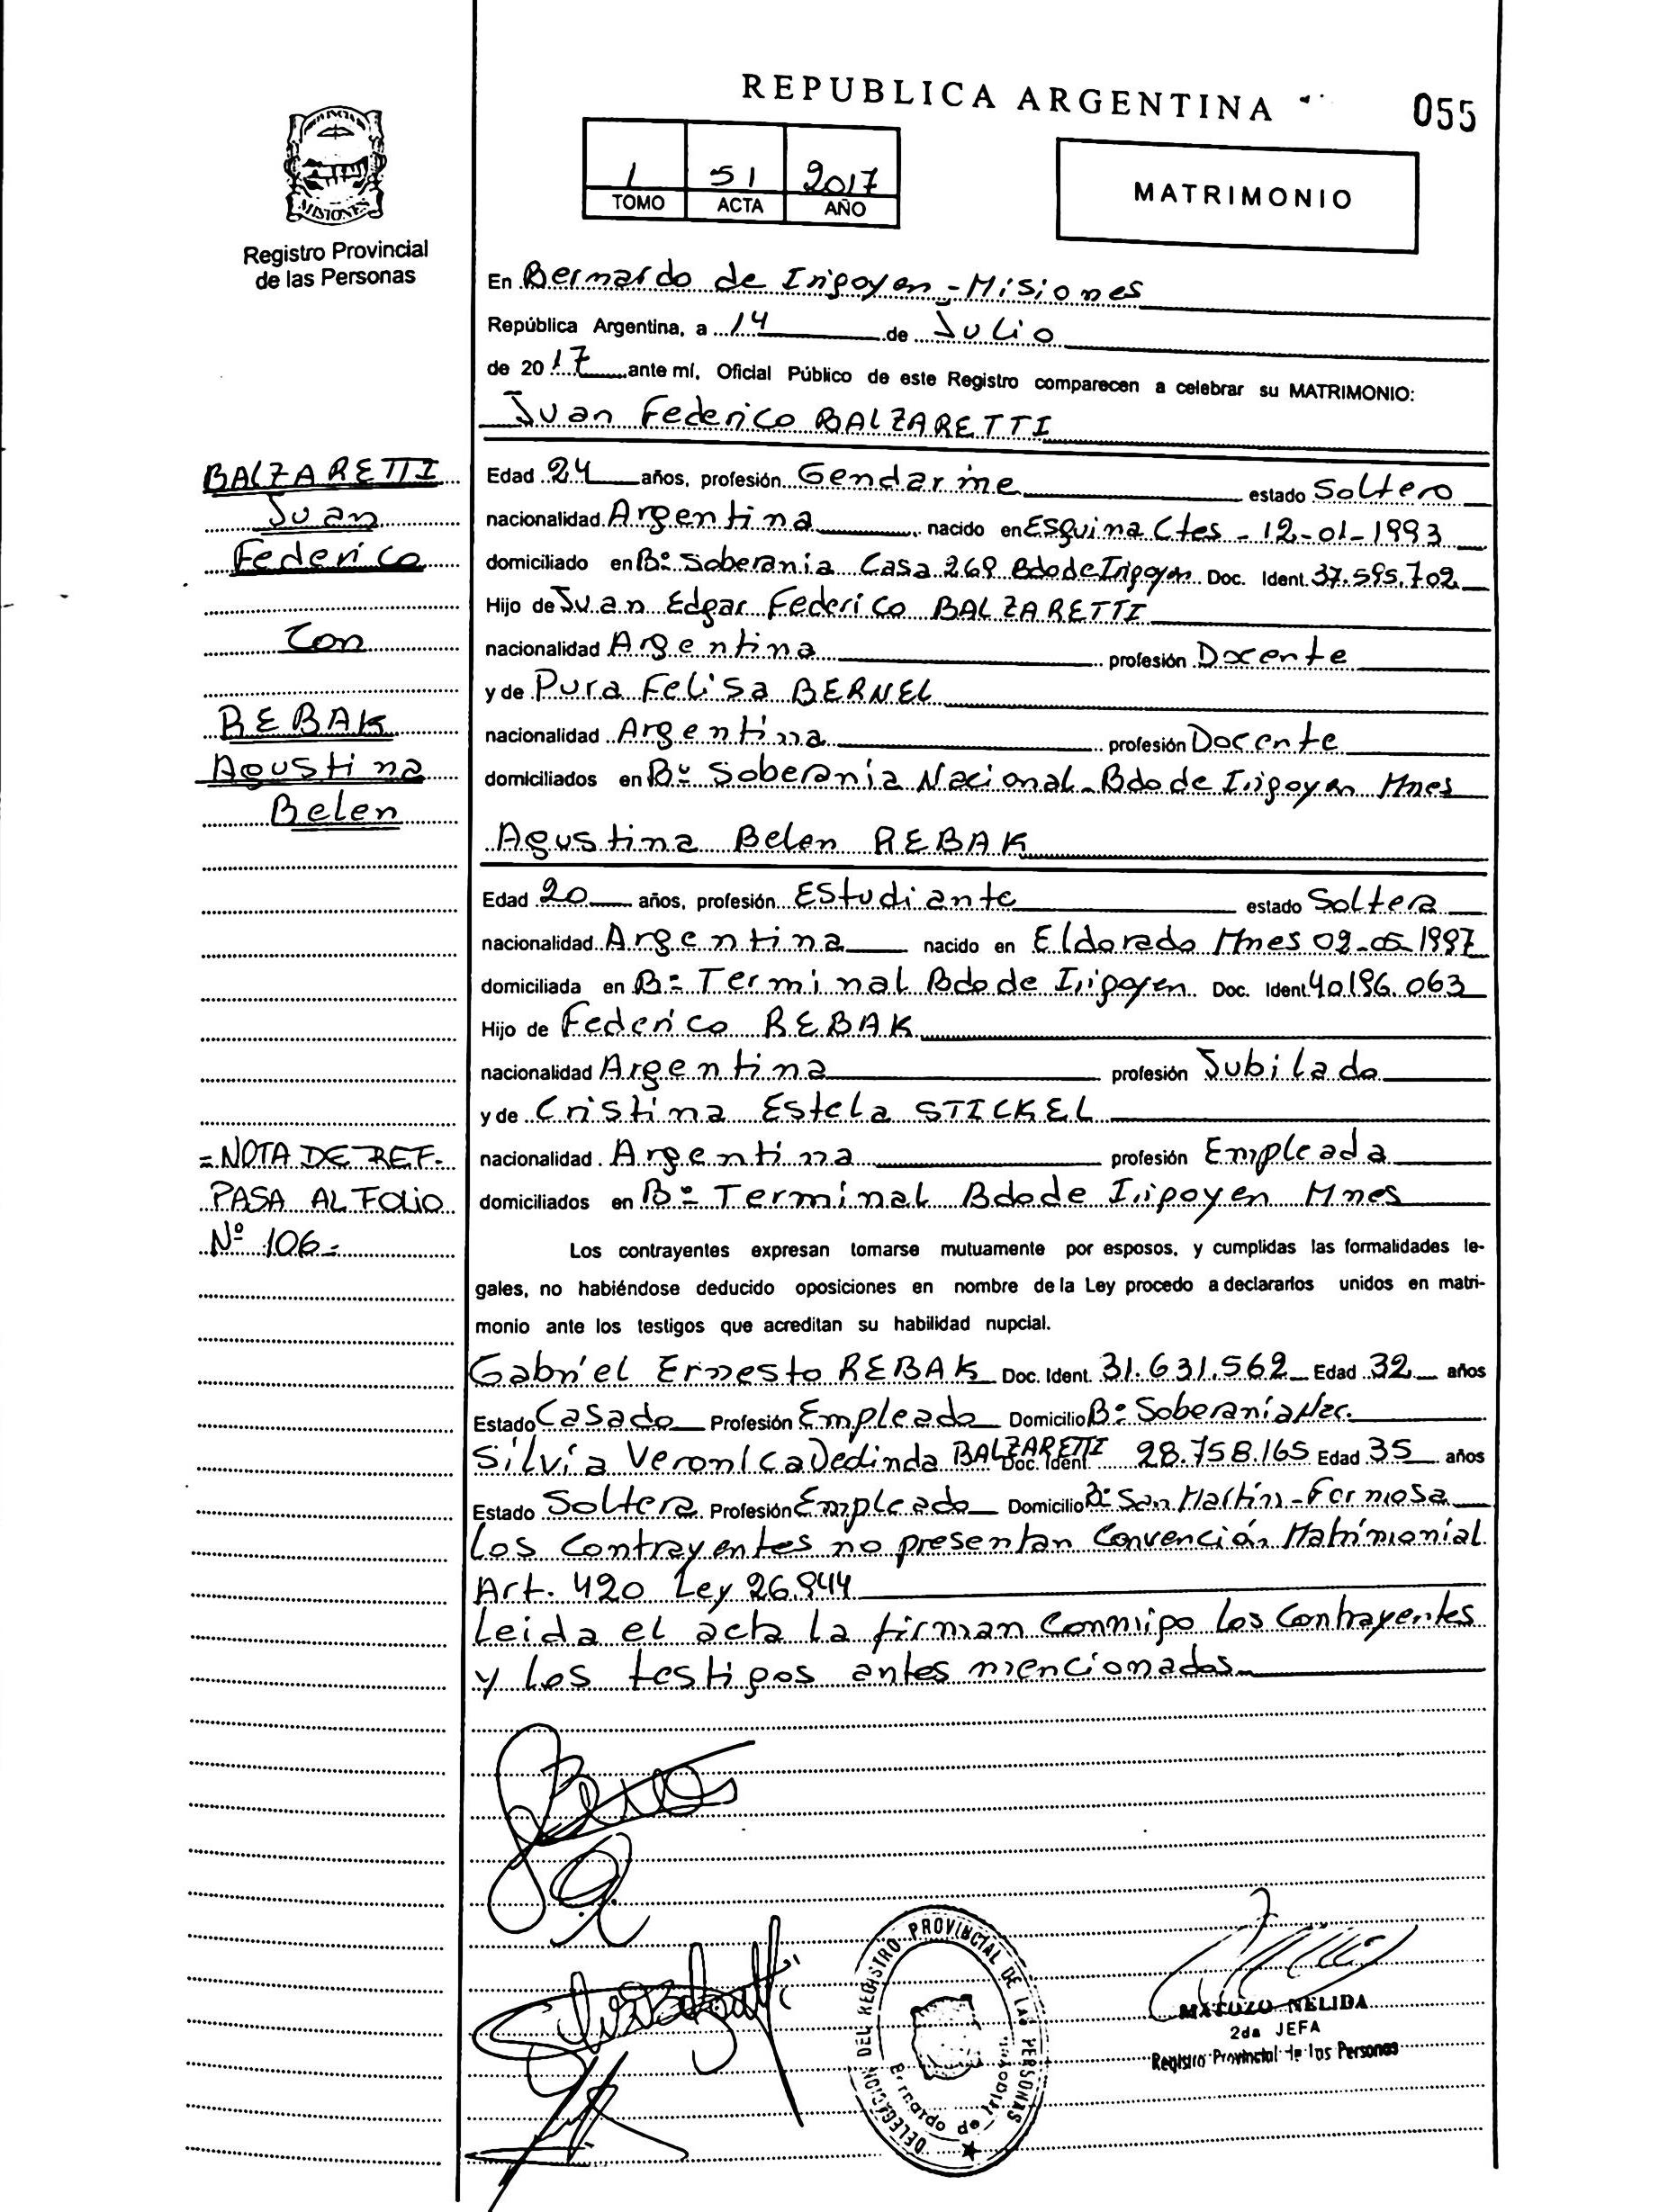 REPUBLICA ARGENTINA
055
1 51 2017
TOMO ACTA AÑO
MATRIMONIO
MISIONES
Registro Provincial
de las Personas
En Bernardo de Irigoyen - Misiones
República Argentina, a 14 de Julio
de 2017 ante mí, Oficial Público de este Registro comparecen a celebrar su MATRIMONIO:
Juan Federico BALZARETTI
BALZARETTI
Juan
Federico
Con
REBAK
Agustina
Belen
Edad 24 años, profesión Gendarme estado Soltero
nacionalidad Argentina nacido en Esquina Ctes - 12-01-1993
domiciliado en Bº Soberania Casa 269 Bdo de Irigoyen Doc. Ident. 37.595.702
Hijo de Juan Edgar Federico BALZARETTI
nacionalidad Argentina profesión Docente
y de Pura Felisa BERNEL
nacionalidad Argentina profesión Docente
domiciliados en Bº Soberanía Nacional - Bdo de Irigoyen Mnes
Agustina Belen REBAK
Edad 20 años, profesión Estudiante estado Soltera
nacionalidad Argentina nacido en Eldorado Mnes 09-05-1997
domiciliada en Bº Terminal Bdo de Irigoyen Doc. Ident. 40196.063
Hijo de Federico REBAK
nacionalidad Argentina profesión Jubilado
y de Cristina Estela STICKEL
nacionalidad Argentina profesión Empleada
domiciliados en Bº Terminal Bdo de Irigoyen Mnes
= NOTA DE REF.
PASA AL FOLIO
Nº 106 =
Los contrayentes expresan tomarse mutuamente por esposos, y cumplidas las formalidades le-
gales, no habiéndose deducido oposiciones en nombre de la Ley procedo a declararlos unidos en matri-
monio ante los testigos que acreditan su habilidad nupcial.
Gabriel Ernesto REBAK Doc. Ident. 31.631.562 Edad 32 años
Estado Casado Profesión Empleado Domicilio Bº Soberanía Nac.
Silvia Veronica Dedinda BALZARETTI Doc. Ident 28.758.165 Edad 35 años
Estado Soltera Profesión Empleado Domicilio Bº San Martín - Formosa
Los Contrayentes no presentan Convención Matrimonial
Art. 420 Ley 26.944
Leida el acta la firman Conmigo los Contrayentes
y los testigos antes mencionados
DELEGACION DEL REGISTRO PROVINCIAL DE LAS PERSONAS
Bernardo de Irigoyen
MATOZO NELIDA
2da JEFA
Registro Provincial de las Personas